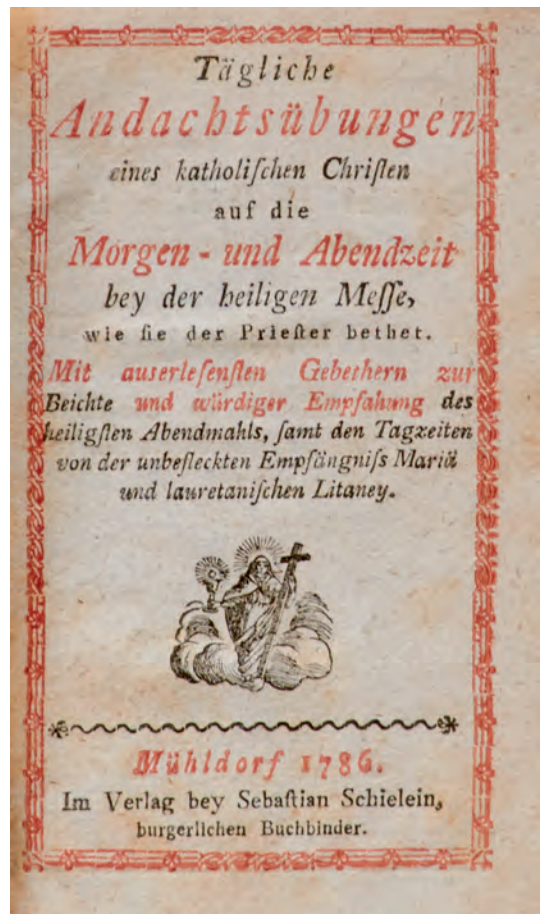 Tägliche
Andachtsübungen
eines katholiſchen Chriſten
auf die
Morgen - und Abendzeit
bey der heiligen Meſſe,
wie ſie der Prieſter bethet.
Mit auserleſenſten Gebethern zur
Beichte und würdiger Empfahung des
heiligſten Abendmahls, ſamt den Tagzeiten
von der unbefleckten Empfängniſs Mariä
und lauretaniſchen Litaney.
Mühldorf 1786.
Im Verlag bey Sebaſtian Schielein,
burgerlichen Buchbinder.